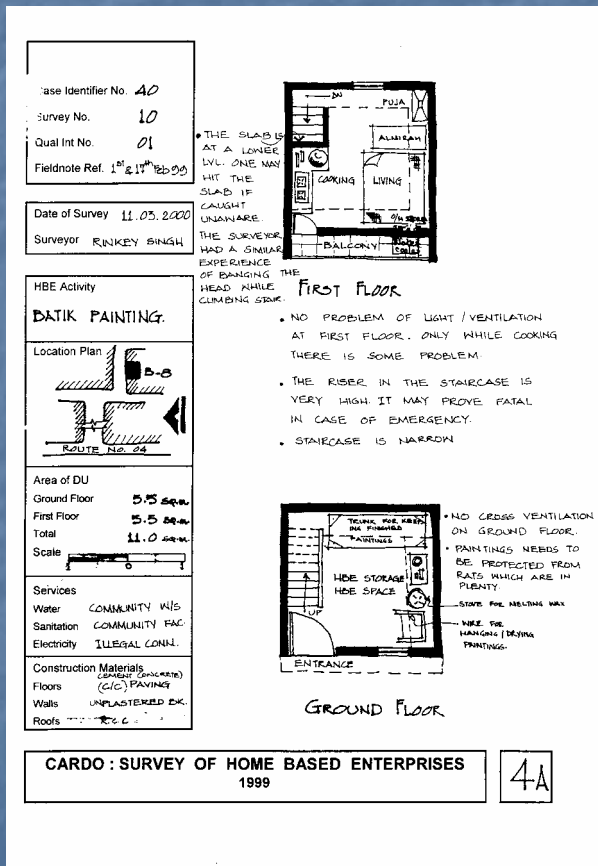 Case Identifier No. 40
Survey No. 10
Qual Int No. 01
Fieldnote Ref. 1st & 17th Feb 99
Date of Survey 11.03.2000
Surveyor RINKEY SINGH
HBE Activity
BATIK PAINTING.
Location Plan
B-8
ROUTE NO. 04
Area of DU
Ground Floor 5.5 sq.m
First Floor 5.5 sq.m
Total 11.0 sq.m
Scale
0
Services
Water COMMUNITY W/S
Sanitation COMMUNITY FAC.
Electricity ILLEGAL CONN.
Construction Materials
(CEMENT CONCRETE)
Floors (C/C) PAVING
Walls UNPLASTERED BK.
Roofs R.C.C
• THE SLAB IS
AT A LOWER
LVL. ONE MAY
HIT THE
SLAB IF
CAUGHT
UNAWARE.
THE SURVEYOR
HAD A SIMILAR
EXPERIENCE
OF BANGING THE
HEAD WHILE
CLIMBING STAIR.
DN
PUJA
ALMIRAH
COOKING
LIVING
BALCONY
FIRST FLOOR
• NO PROBLEM OF LIGHT / VENTILATION
AT FIRST FLOOR. ONLY WHILE COOKING
THERE IS SOME PROBLEM.
• THE RISER IN THE STAIRCASE IS
VERY HIGH. IT MAY PROVE FATAL
IN CASE OF EMERGENCY.
• STAIRCASE IS NARROW
TRUNK FOR KEEP-
ING FINISHED
PAINTINGS
HBE STORAGE
HBE SPACE
UP
ENTRANCE
• NO CROSS VENTILATION
ON GROUND FLOOR.
• PAINTINGS NEEDS TO
BE PROTECTED FROM
RATS WHICH ARE IN
PLENTY.
STOVE FOR MELTING WAX
WIRE FOR
HANGING / DRYING
PAINTINGS.
GROUND FLOOR
CARDO : SURVEY OF HOME BASED ENTERPRISES
1999
4A